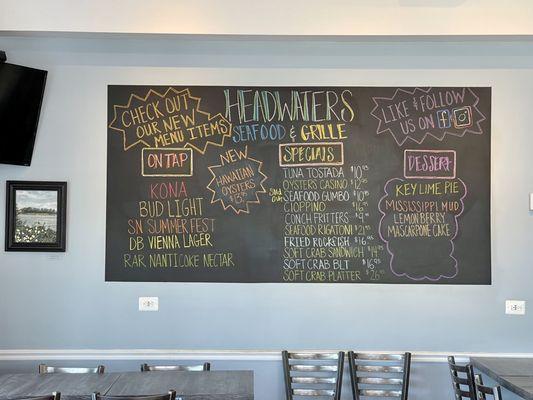 CHECK OUT
OUR NEW
MENU ITEMS
HEADWATERS
SEAFOOD & GRILLE
LIKE & FOLLOW
US ON
ON TAP
KONA
BUD LIGHT
SN SUMMER FEST
DB VIENNA LAGER
RAR NANTICOKE NECTAR
NEW
HAWAIIAN
OYSTERS
SPECIALS
TUNA TOSTADA $10.95
OYSTERS CASINO $12.95
SEAFOOD GUMBO $10.95
CIOPPINO
CONCH FRITTERS $9.95
SEAFOOD RIGATONI $21.95
FRIED ROCKFISH $16.95
SOFT CRAB SANDWICH $14.95
SOFT CRAB BLT $16.95
SOFT CRAB PLATTER $26.95
DESSERTS
KEY LIME PIE
MISSISSIPPI MUD
LEMON BERRY
MASCARPONE CAKE